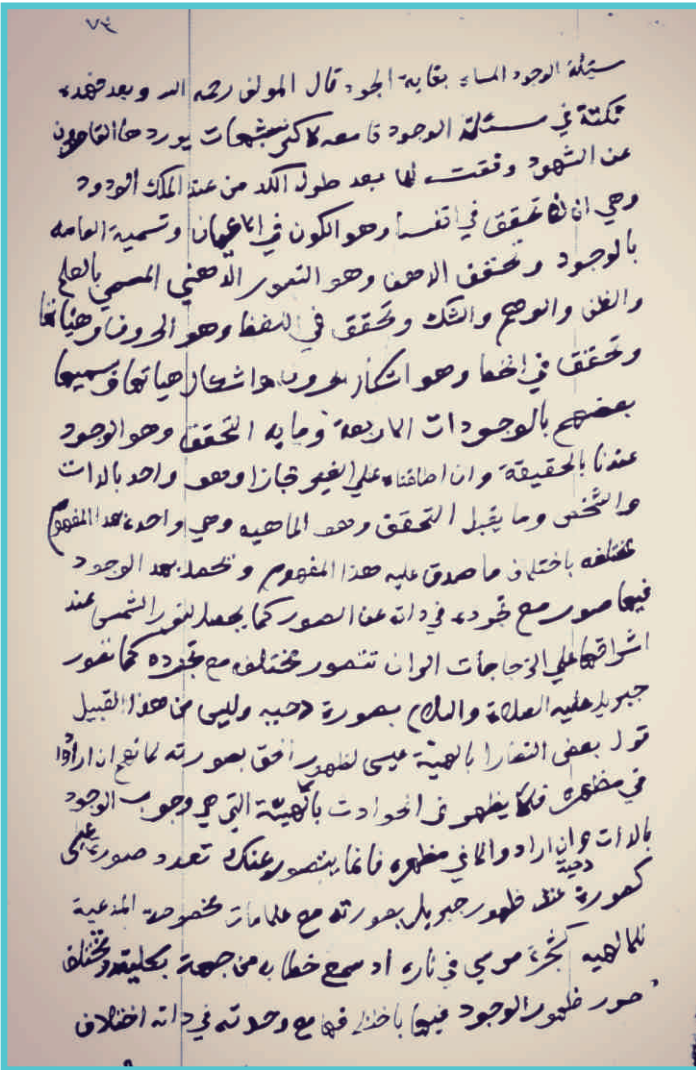 ٧٣
مسئلة الوجود المسماه بغاية الجود قال المولف رحمه الله وبعد فهذه
نكتة في مسئلة الوجود قامعه لاكثر شبهات يوردها القاصرون
عن الشهود وفقت لها بعد طول الكد من عند الملك الودود
وهي ان لنا تحقق في انفسنا وهو الكون في الاعيان وتسمية العامه
بالوجود وتحقق الذهن وهو التصور الذهني المسمي بالعلم
والظن والوهم والشك وتحقق في اللفظ وهو الحروف وهياتها
وتحقق في الخط وهو اشكال الحروف واشكال هياتها وتسميها
بعضهم بالوجودات الاربعة وما به التحقق وهو الوجود
عندنا بالحقيقة وان اطلقناه علي الغير مجازا وهو واحد بالذات
والشخص وما يقبل التحقق وهو الماهيه وهي واحده بهذا المفهوم
مختلفه باختلاف ما صدق عليه هذا المفهوم و بهذا الوجود
فيها صور مع تجرده في ذاته عن الصور كما يحصل لنور الشمس عند
اشراقها علي الزجاجات الوان تتصور مختلفه مع تجرده كما تصور
جبريل عليه الصلاة والسلام بصورة دحيه وليس من هذا القبيل
قول بعض النصارا بالهيئة عيسى لظهور الحق بصورته لانهم ان ارادوا
في مظهره فلا يظهر في الحوادث بالهيئة التي هي وجوب الوجود
بالذات وان ارادوا في مظهره فانما يتصور عندك تعدد صورة عيسى
كصورة دحية عند ظهور جبريل بصورته مع علامات مخصوصة المدعية
للالهيه كشجرة موسي في ناره او سمع خطابه من جهة بكليته وتختلف
صور ظهور الوجود فيها باختلافها مع وحدته في ذاته اختلاف